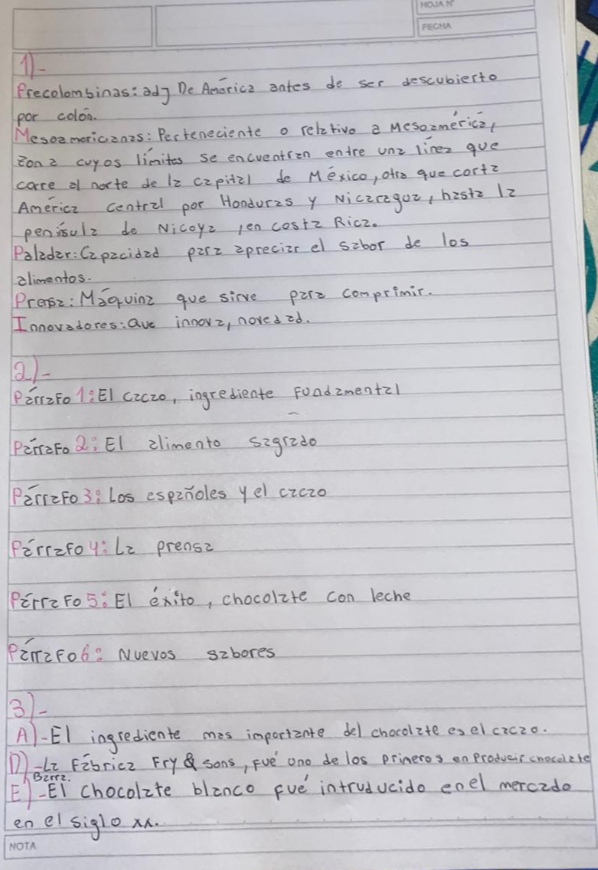 HOJA N°
FECHA
1)-
Precolombinas: adj De América antes de ser descubierto
por colón.
Mesoamericanas: Perteneciente o relativo a Mesoamérica,
zona cuyos límites se encuentran entre una línea que
corre al norte de la capital de México, otra que corta
América Central por Honduras y Nicaragua, hasta la
penísula de Nicoya, en costa Rica.
Paladar: Capacidad para apreciar el sabor de los
alimentos.
Prensa: Máquina que sirve para comprimir.
Innovadores: Que innova, novedad.
2)-
Párrafo 1: El cacao, ingrediente fundamental
Párrafo 2: El alimento sagrado
Párrafo 3: Los españoles y el cacao
Párrafo 4: La prensa
Párrafo 5: El éxito, chocolate con leche
Párrafo 6: Nuevos sabores
3)-
A)-El ingrediente mas importante del chocolate es el cacao.
D)-La Fábrica Fry & sons, fué uno de los primeros en Producir chocolate
Barra.
E)-El chocolate blanco fué intruducido en el mercado
en el siglo xx.
NOTA